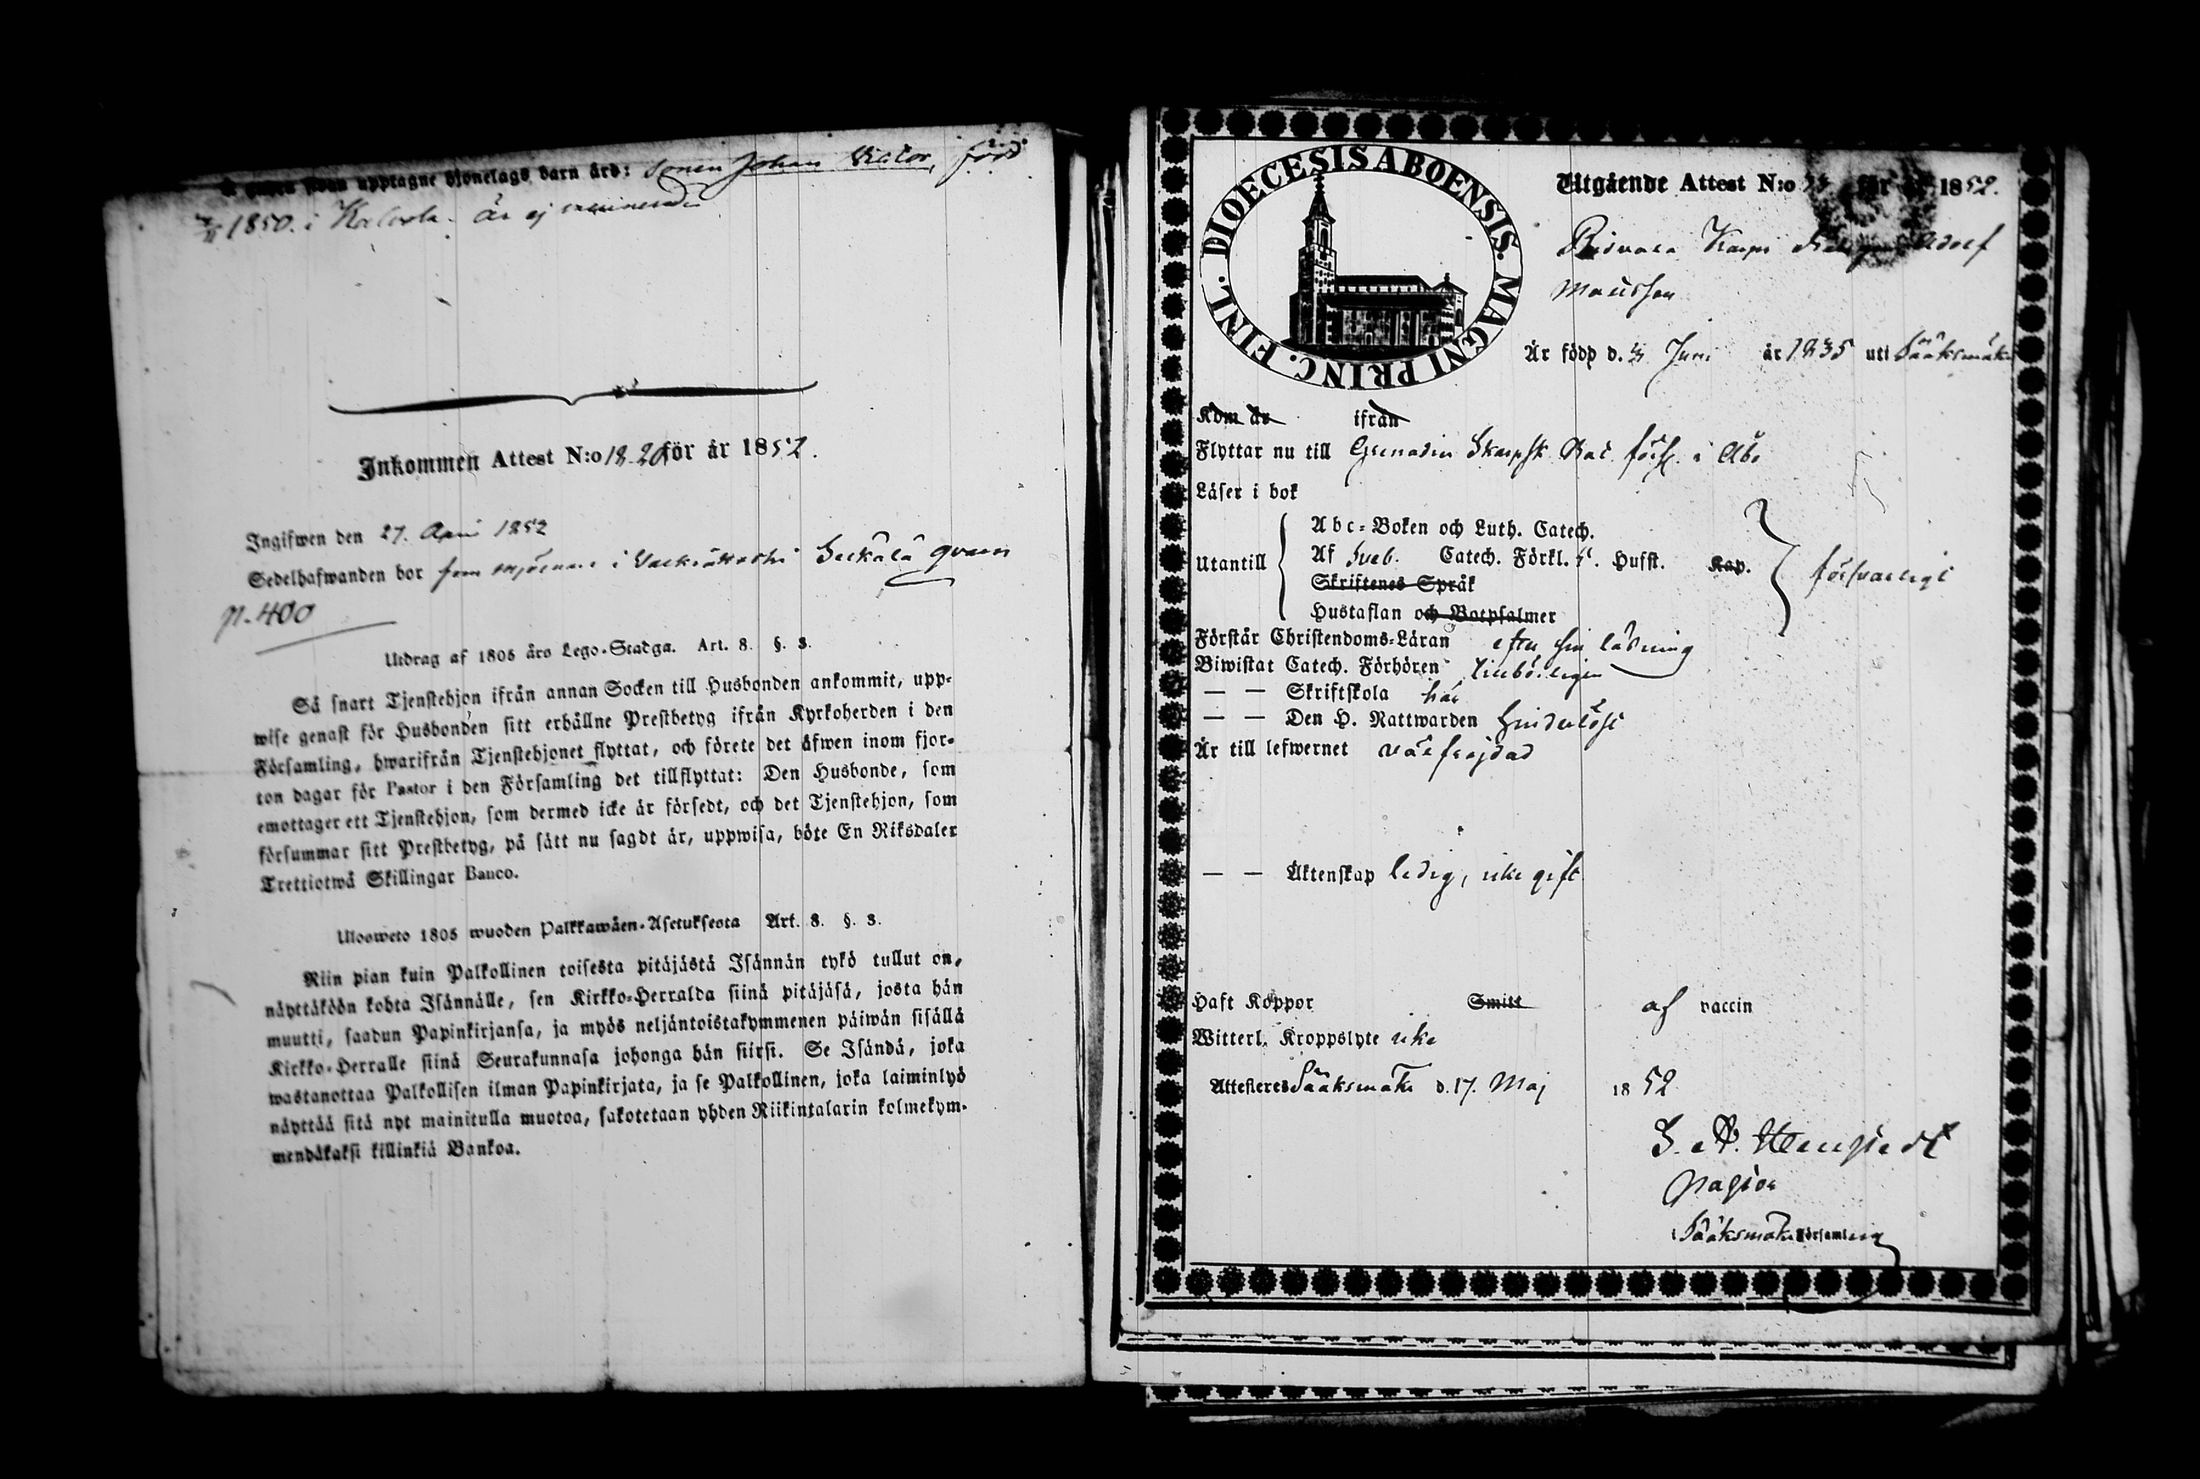 upptagne Hjonelags barn äro: sonen Johan Viktor, född
1850. i Kalvola. är ej vaccinerad
Inkommen Attest N:o 18. 20 för år 1852.
Ingifwen den 27. April 1852
Sedelhafwanden bor som mjölnare i
p. 400
Utdrag af 1805 års Lego-Stadga. Art. 8. §. 3.
Så snart Tjenstehjon ifrån annan Socken till Husbonden ankommit, upp-
wise genast för Husbonden sitt erhållne Prestbetyg ifrån Kyrkoherden i den
Församling, hwarifrån Tjenstehjonet flyttat, och förete det äfwen inom fjor-
ton dagar för Pastor i den Församling det tillflyttat: Den Husbonde, som
emottager ett Tjenstehjon, som dermed icke är försedt, och det Tjenstehjon, som
försummar sitt Prestbetyg, på sätt nu sagdt är, uppwisa, böte En Riksdaler
Trettiotwå Skillingar Banco.
Ulosweto 1805 wuoden Palkkawäen-Asetuksesta Art. 8. §. 3.
Niin pian kuin Palkollinen toisesta pitäjästä Isännän tykö tullut on,
näyttäköön kohta Isännälle, sen Kirkko-Herralda siinä pitäjäsä, josta hän
muutti, saadun Papinkirjansa, ja myös neljäntoistakymmenen päiwän sisällä
Kirkko-Herralle siinä Seurakunnasa johonga hän siirsi. Se Isändä, joka
wastanottaa Palkollisen ilman Papinkirjata, ja se Palkollinen, joka laiminlyö
näyttää sitä nyt mainitulla muotoa, sakotetaan yhden Riikintalarin kolmekym-
mendäkaksi killinkiä Bankoa.
DIOECESIS ABOENSIS. MAGNI PRINC. FINL.
Utgående Attest N:o för år 1852.
Adolf
Är född d. Juni år 1835 uti Sääksmäki
Kom år ifrån
Flyttar nu till Grenadier Skarpsk. Bat. förs. i Åbo
Läser i bok
Utantill
Abc-Boken och Luth. Catech.
Af Sveb. Catech. Förkl. Husst. Kap.
Skriftenes Språk
Hustaflan och Botpsalmer
försvarligt
Förstår Christendoms-Läran efter sin läsning
Biwistat Catech. Förhören tillbörligen
— — Skriftskola här
— — Den H. Nattwarden hinderlöst
Är till lefwernet välfrejdad
— — Äktenskap ledig, icke gift
Haft Koppor Smitt af vaccin
Witterl. Kroppslyte icke
Attesteres Sääksmäki d. 17. Maj 1852
Pastor
i Sääksmäki Församling